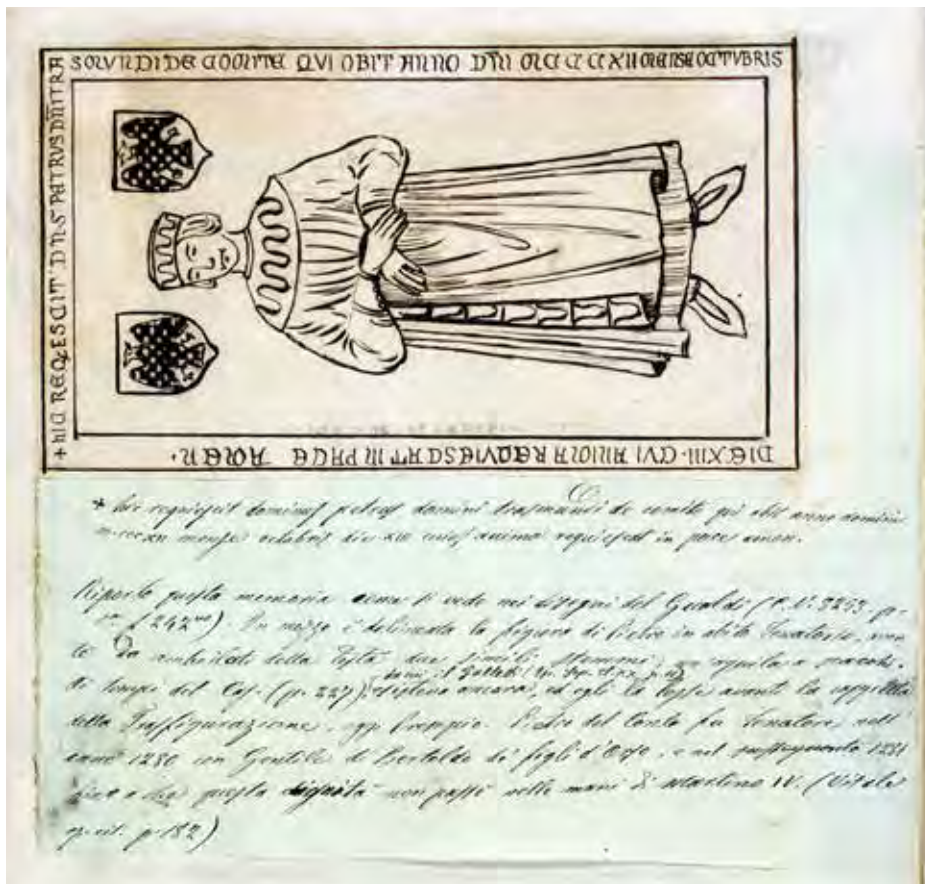 + HIC REQESCIT DNS PETRUS DNI TRA
SMUNDI DE COMITE QVI OBIT ANNO DNI MCCCXII MENSE OCTVBRIS
DIE XIII · CVI ANIMA REQVIESCAT IN PACE AMEN ·
+ hic requiescit dominus petrus domini trasmundi de comite qui obit anno domini
m·cccxii mense octubris die xiii cuius anima requiescat in pace amen.
Riporto questa memoria come si vede nei disegni del Gualdi (C.V. 8253 p.
f 242 vo). In mezzo è delineata la figura di Pietro in abito Senatorio, aven
te da ambi i lati della testa due simili stemmi, un'aquila a scacchi.
Ai tempi del Cas. (p. 227), esisteva ancora, ed egli la lesse avanti la cappella
della Trasfigurazione, ogg. Presepio. Pietro del Conte fu Senatore nell'
anno 1280 con Gentile di Bertoldo de' figli d'Orso, e nel susseguente 1281
fino a che questa dignità non passò nelle mani di Martino IV. (Vitale
op. cit. p. 182)